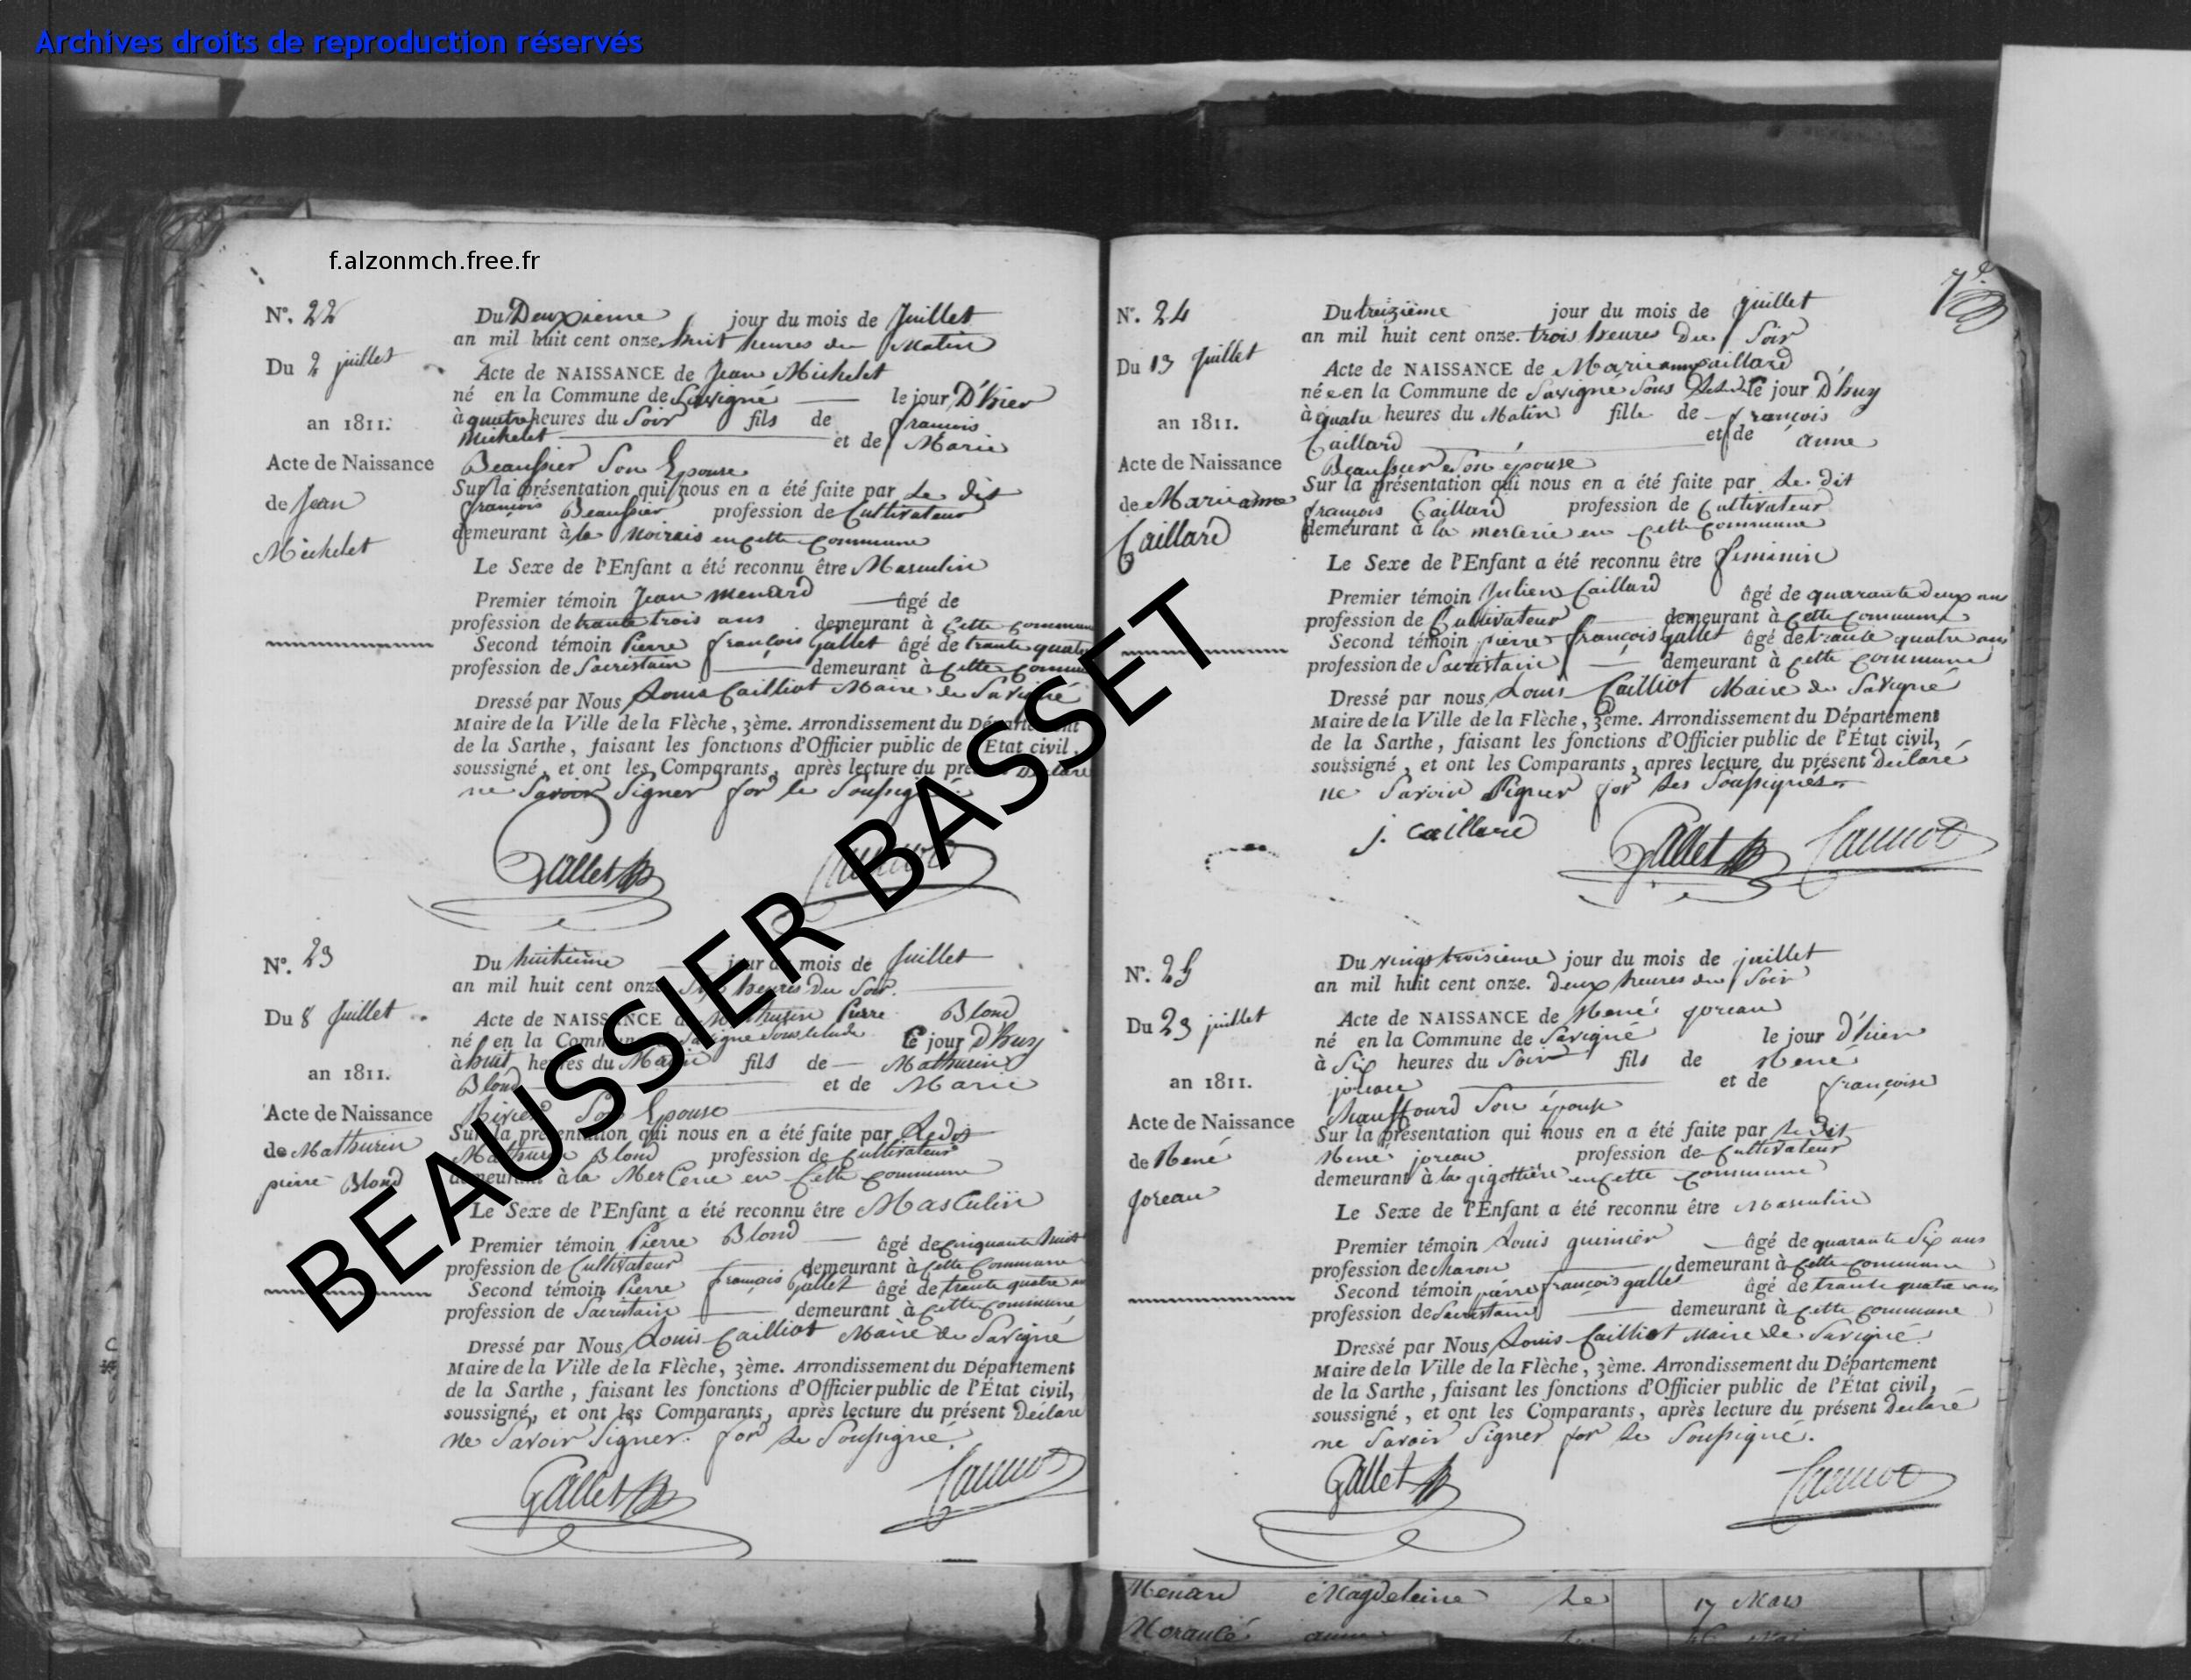 Archives droits de reproduction réservés
f.alzonmch.free.fr
BEAUSSIER BASSET
N°. 22
Du 2 juillet
an 1811.
Acte de Naissance
de Jean
Michelet
Du Deuxieme jour du mois de Juillet
an mil huit cent onze. huit heures du Matin
Acte de NAISSANCE de Jean Michelet
né en la Commune de Savigné le jour D'hier
à quatre heures du Soir fils de francois
Michelet et de Marie
Beaussier Son Epouse
Sur la présentation qui nous en a été faite par Le dit
francois Beaussier profession de Cultivateur
demeurant à la Noirais en cette Commune
Le Sexe de l'Enfant a été reconnu être Masculin
Premier témoin Jean menard âgé de
profession de trante trois ans demeurant à Cette Commune
Second témoin Pierre françois Gallet âgé de trante quatre
profession de Sacristain demeurant à Cette Commune
Dressé par Nous Louis Cailliot Maire de Savigné
Maire de la Ville de la Flèche, 3ème. Arrondissement du Département
de la Sarthe, faisant les fonctions d'Officier public de l'Etat civil,
soussigné, et ont les Comparants, après lecture du présent Declaré
ne Savoir Signer for le Soussigné
Gallet
N°. 23
Du 8 Juillet
an 1811.
Acte de Naissance
de Mathurin
pierre Blond
Du huitieme jour du mois de Juillet
an mil huit cent onze heures Du Soir.
Acte de NAISSANCE de Mathurin Pierre Blond
né en la Commune de Savigné Sous le lude Le jour D'huy
à huit heures du Matin fils de Mathurin
Blond et de Marie
Son Epouse
Sur la présentation qui nous en a été faite par Ledit
Mathurin Blond profession de Cultivateur
demeurant à la Mercerie en Cette Commune
Le Sexe de l'Enfant a été reconnu être Masculin
Premier témoin Pierre Blond âgé de cinquante huit
profession de Cultivateur demeurant à Cette Commune
Second témoin Pierre françois Gallet âgé de trante quatre an
profession de Sacristain demeurant à Cette Commune
Dressé par Nous Louis Cailliot Maire de Savigné
Maire de la Ville de la Flèche, 3ème. Arrondissement du Département
de la Sarthe, faisant les fonctions d'Officier public de l'État civil,
soussigné, et ont les Comparants, après lecture du présent Déclaré
ne Savoir Signer. for Le Soussigné.
Gallet
N°. 24
Du 13 Juillet
an 1811.
Acte de Naissance
de Marie anne
Caillard
Du treizième jour du mois de juillet
an mil huit cent onze. trois heures Du Soir
Acte de NAISSANCE de Marie anne Caillard
né e en la Commune de Savigne Sous Le Lude le jour D'huy
à quatre heures du Matin fille de françois
Caillard et de anne
Beaussier Son épouse
Sur la présentation qui nous en a été faite par Le dit
françois Caillard profession de Cultivateur
demeurant à la mercerie en cette Commune
Le Sexe de l'Enfant a été reconnu être feminin
Premier témoin Julien Caillard âgé de quarante deux ans
profession de Cultivateur demeurant à Cette Commune
Second témoin pierre françois gallet âgé de trante quatre ans
profession de Sacristain demeurant à Cette Commune
Dressé par nous, Louis Cailliot Maire de Savigné
Maire de la Ville de la Flèche, 3ème. Arrondissement du Département
de la Sarthe, faisant les fonctions d'Officier public de l'État civil,
soussigné, et ont les Comparants, apres lecture du présent Declaré
ne Savoir Signer for Les Soussignés.
j. caillard
Gallet
N°. 25
Du 23 juillet
an 1811.
Acte de Naissance
de René
Joreau
Du vingt troisieme jour du mois de juillet
an mil huit cent onze. deux heures du Soir
Acte de NAISSANCE de René joreau
né en la Commune de Savigné le jour d'hier
à Six heures du Soir fils de René
joreau et de françoise
Chauffourd Son épouse
Sur la présentation qui nous en a été faite par Le Dit
René joreau profession de Cultivateur
demeurant à la gigottière en cette Commune
Le Sexe de l'Enfant a été reconnu être Masculin
Premier témoin Louis guinnier âgé de quarante Six ans
profession de charon demeurant à Cette Commune
Second témoin pierre françois gallet âgé de trante quatre ans
profession de Sacristain demeurant à Cette Commune
Dressé par Nous Louis Cailliot Maire de Savigné.
Maire de la Ville de la Flèche, 3ème. Arrondissement du Département
de la Sarthe, faisant les fonctions d'Officier public de l'État civil,
soussigné, et ont les Comparants, après lecture du présent Declaré
ne Savoir Signer for Le Soussigné.
Gallet
Menard Magdeleine Le 17 Mars